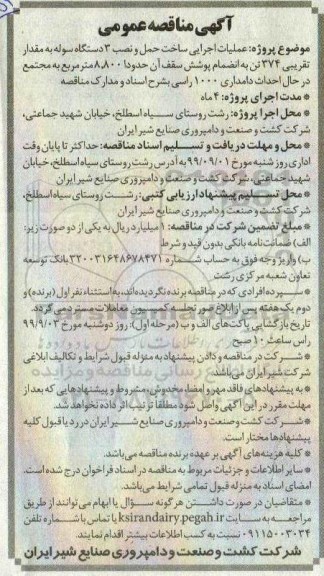 آگهی مناقصه عمومی
موضوع پروژه: عملیات اجرایی ساخت حمل و نصب ۳ دستگاه سوله به مقدار
تقریبی ۳۷۴ تن به انضمام پوشش سقف آن حدودا ۸٫۸۰۰ متر مربع به مجتمع
در حال احداث دامداری ۱۰۰۰ راسی بشرح اسناد و مدارک مناقصه
* مدت اجرای پروژه: ۴ ماه
* محل اجرا پروژه: رشت روستای سیاه اسطلخ، خیابان شهید جماعتی،
شرکت کشت و صنعت و دامپروری صنایع شیر ایران
* محل و مهلت دریافت و تسلیم اسناد مناقصه: حداکثر تا پایان وقت
اداری روز شنبه مورخ ۹۹/۰۹/۰۱ به آدرس رشت روستای سیاه اسطلخ، خیابان
شهید جماعتی، شرکت کشت و صنعت و دامپروری صنایع شیر ایران
* محل تسلیم پیشنهاد ارزیابی کتبی: رشت روستای سیاه اسطلخ،
شرکت کشت و صنعت و دامپروری صنایع شیر ایران
* مبلغ تضمین شرکت در مناقصه: ۱ میلیارد ریال به یکی از دو صورت زیر:
الف) ضمانت‌نامه بانکی بدون قید و شرط
ب) واریز وجه فوق به حساب شماره ۳۲۰۰۰۳۱۶۴۸۶۷۸۴۷۱ بانک توسعه
تعاون شعبه مرکزی رشت
* سپرده افرادی که در مناقصه برنده نگردیده‌اند، به استثناء نفر اول (برنده) و
دوم یک هفته پس از ابلاغ صورتجلسه کمیسیون معاملات مسترد می گردد.
تاریخ بازگشایی پاکت‌های الف و ب (مرحله اول): روز دوشنبه مورخ ۹۹/۰۹/۰۳
راس ساعت ۱۰ صبح
* شرکت در مناقصه و دادن پیشنهاد به منزله قبول شرایط و تکالیف ابلاغی
شرکت شیر ایران می‌باشد.
* به پیشنهادهای فاقد مهر و امضا، مخدوش، مشروط و پیشنهادهایی که بعد از
مهلت مقرر در این آگهی واصل شود مطلقا ترتیب اثر داده نخواهد شد.
* شرکت کشت و صنعت و دامپروری صنایع شیر ایران در رد یا قبول کلیه
پیشنهادها مختار است.
* کلیه هزینه‌های آگهی بر عهده برنده مناقصه می‌باشد.
* سایر اطلاعات و جزئیات مربوط به مناقصه در اسناد فراخوان درج شده است.
امضای اسناد به منزله قبول تمامی شرایط می‌باشد.
* متقاضیان در صورت داشتن هر گونه سؤال یا ابهام می‌توانند از طریق
مراجعه به سایت ksirandairy.pegah.ir یا تماس با شماره تلفن
۰۹۱۱۵۰۰۳۰۳۴ نسبت به کسب اطلاعات بیشتر اقدام نمایند.
شرکت کشت و صنعت و دامپروری صنایع شیر ایران